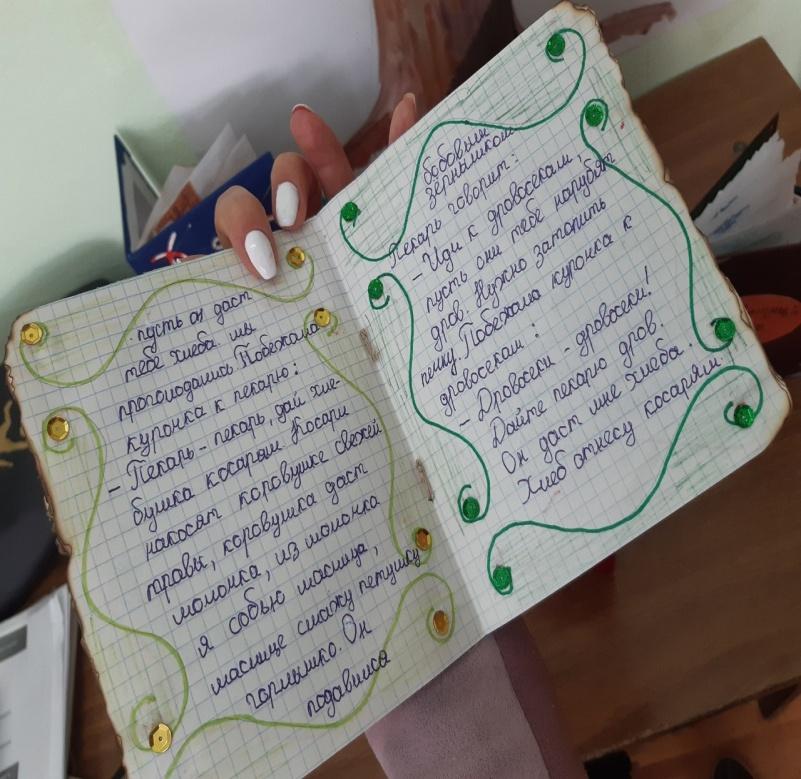 пусть он даст
тебе хлеба. мы
проголодались Побежала
курочка к пекарю:
- Пекарь - пекарь, дай хле-
бушка косарям Косари
накосят коровушке свежей
травы, коровушка даст
молочка, из молочка
я собью маслица,
маслице смажу петушку
горлышко. Он
подавился
бобовым
зёрнышком
Пекарь говорит:
- Иди к дровосекам,
пусть они тебе нарубят
дров. Нужно затопить
печку. Побежала курочка к
дровосекам:
- Дровосеки - дровосеки!
Дайте пекарю дров.
Он даст мне хлеба.
Хлеб отнесу косарям.